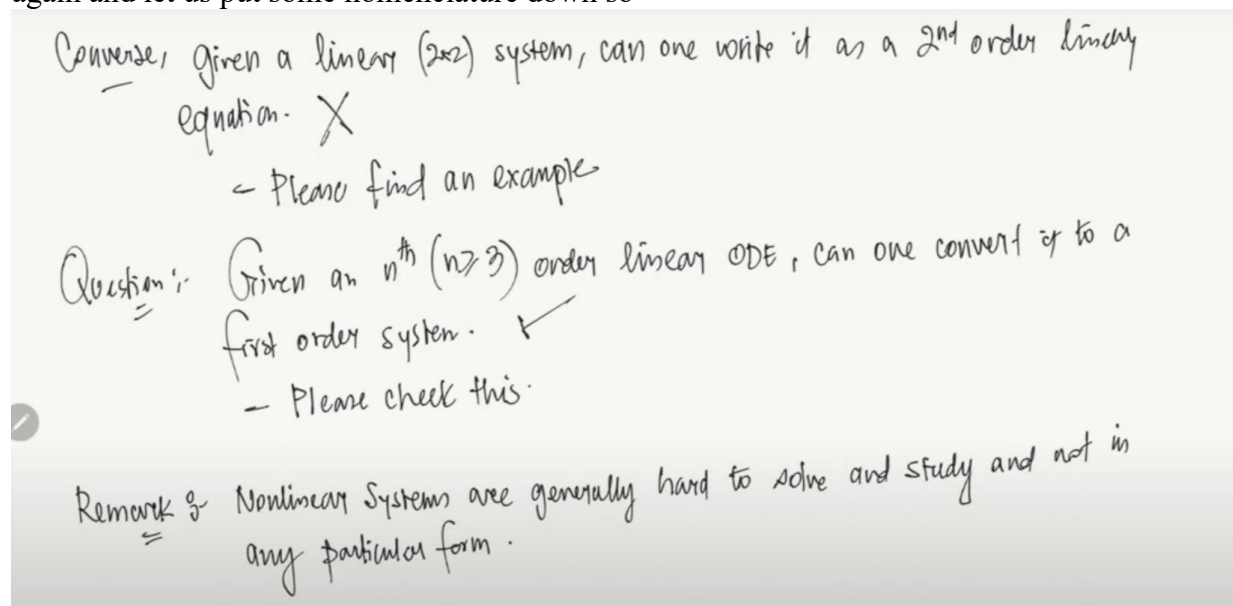 again and let us put some nomenclature down so
Converse, given a linear (2x2) system, can one write it as a 2nd order linear
equation. X
- Please find an example
Question :- Given an nth (n≥3) order linear ODE, can one convert it to a
first order system. ✓
- Please check this.
Remark :- Nonlinear Systems are generally hard to solve and study and not in
any particular form.